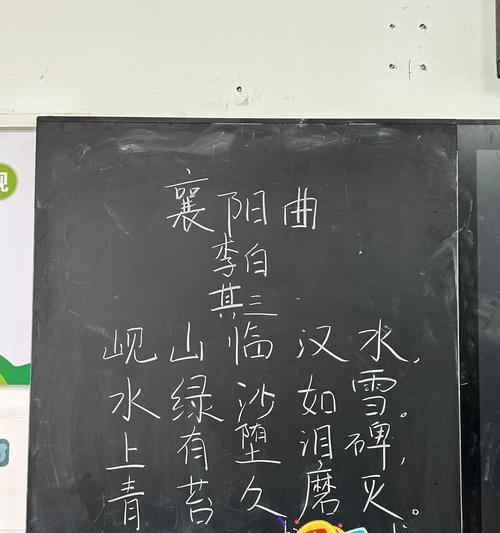 襄阳曲
李白
其三
岘山临汉水,
水绿沙如雪。
上有堕泪碑,
青苔久磨灭。